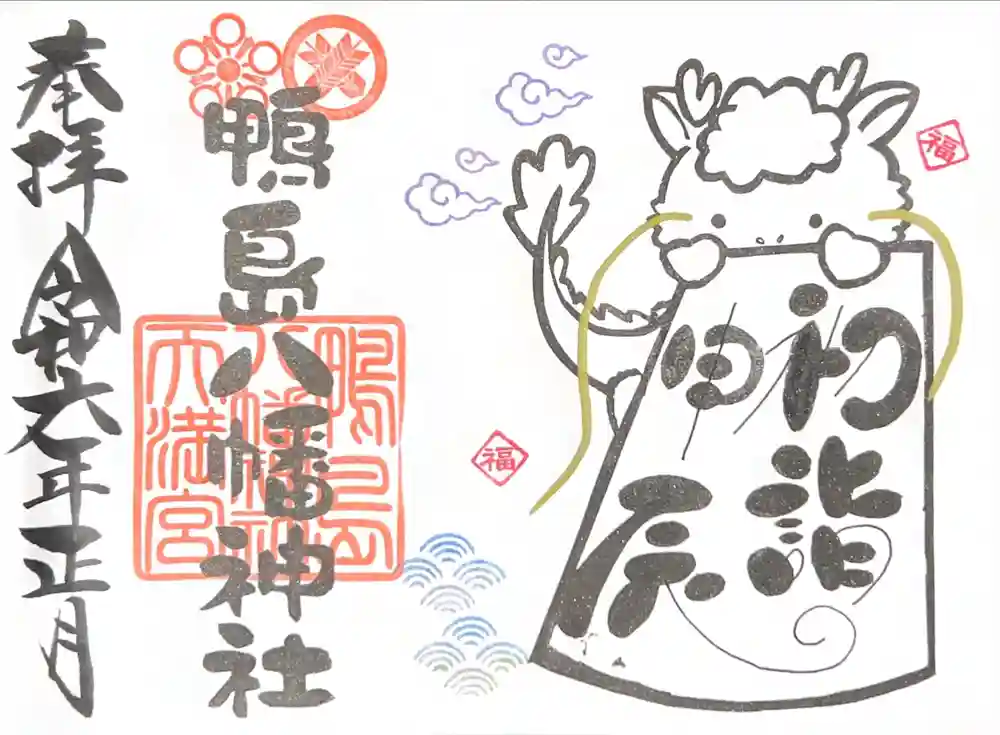 初詣
甲辰
福
福
鴨島八幡神社
鴨島
八幡神社
天満宮
奉拝 令和六年正月